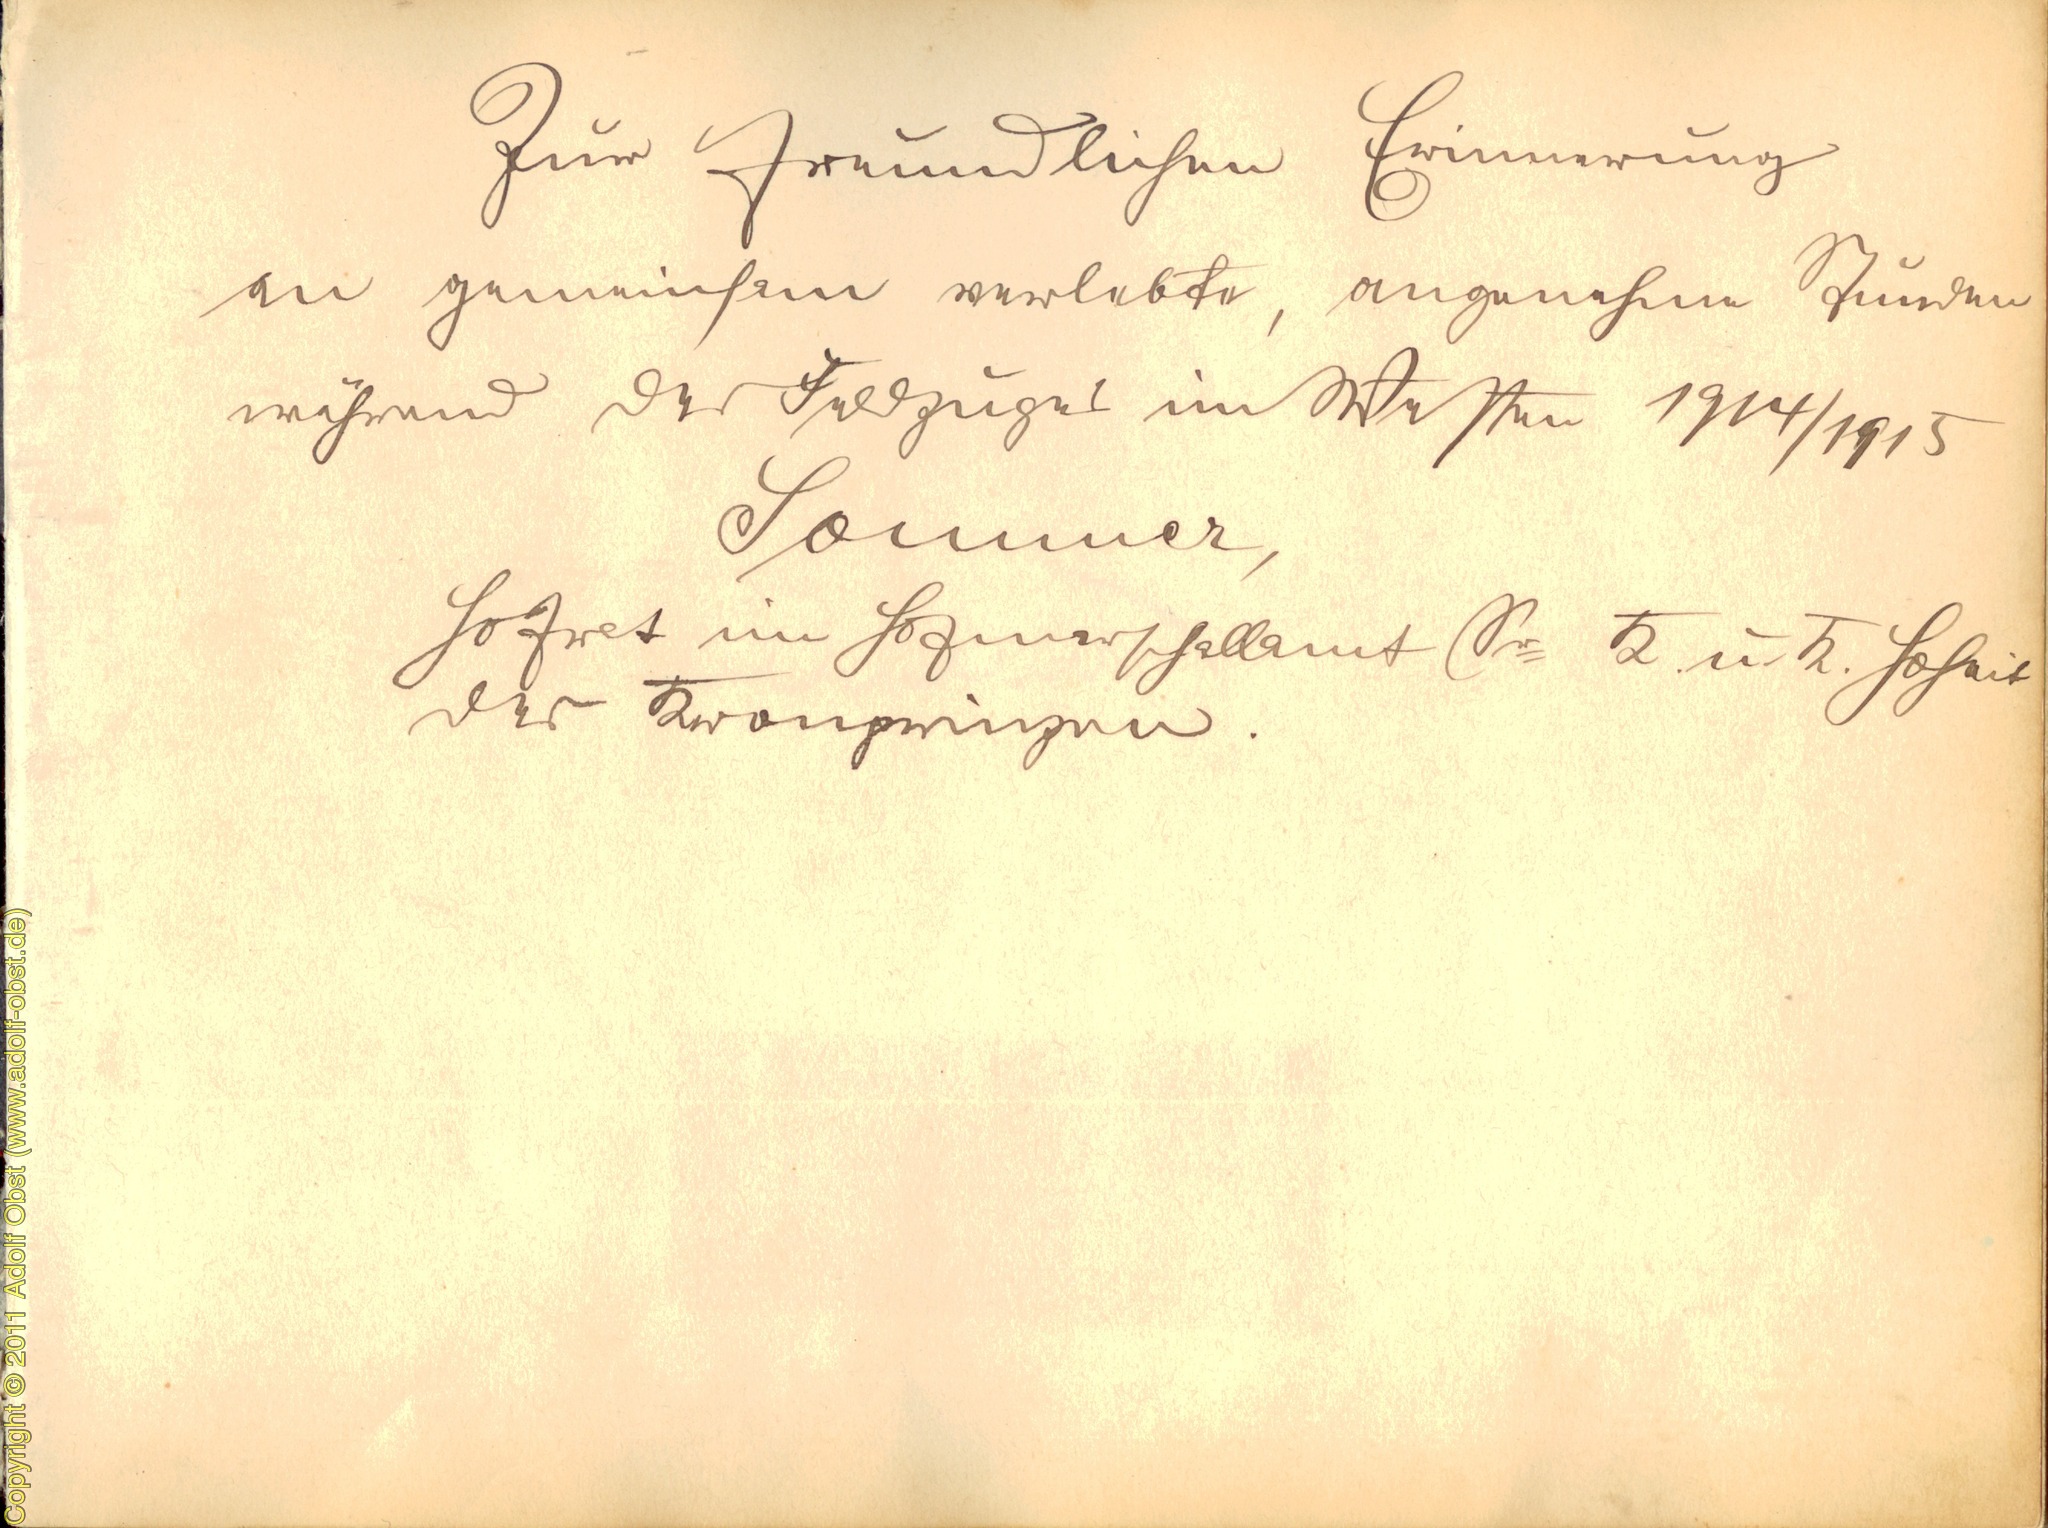 Zur freundlichen Erinnerung
an gemeinsam verlebte, angenehme Stunden
während des Feldzuges im Westen 1914/1915
Sommer,
Hofrat im Hofmarschallamt Sr. K. u. K. Hoheit
des Kronprinzen.
Copyright © 2011 Adolf Obst (www.adolf-obst.de)